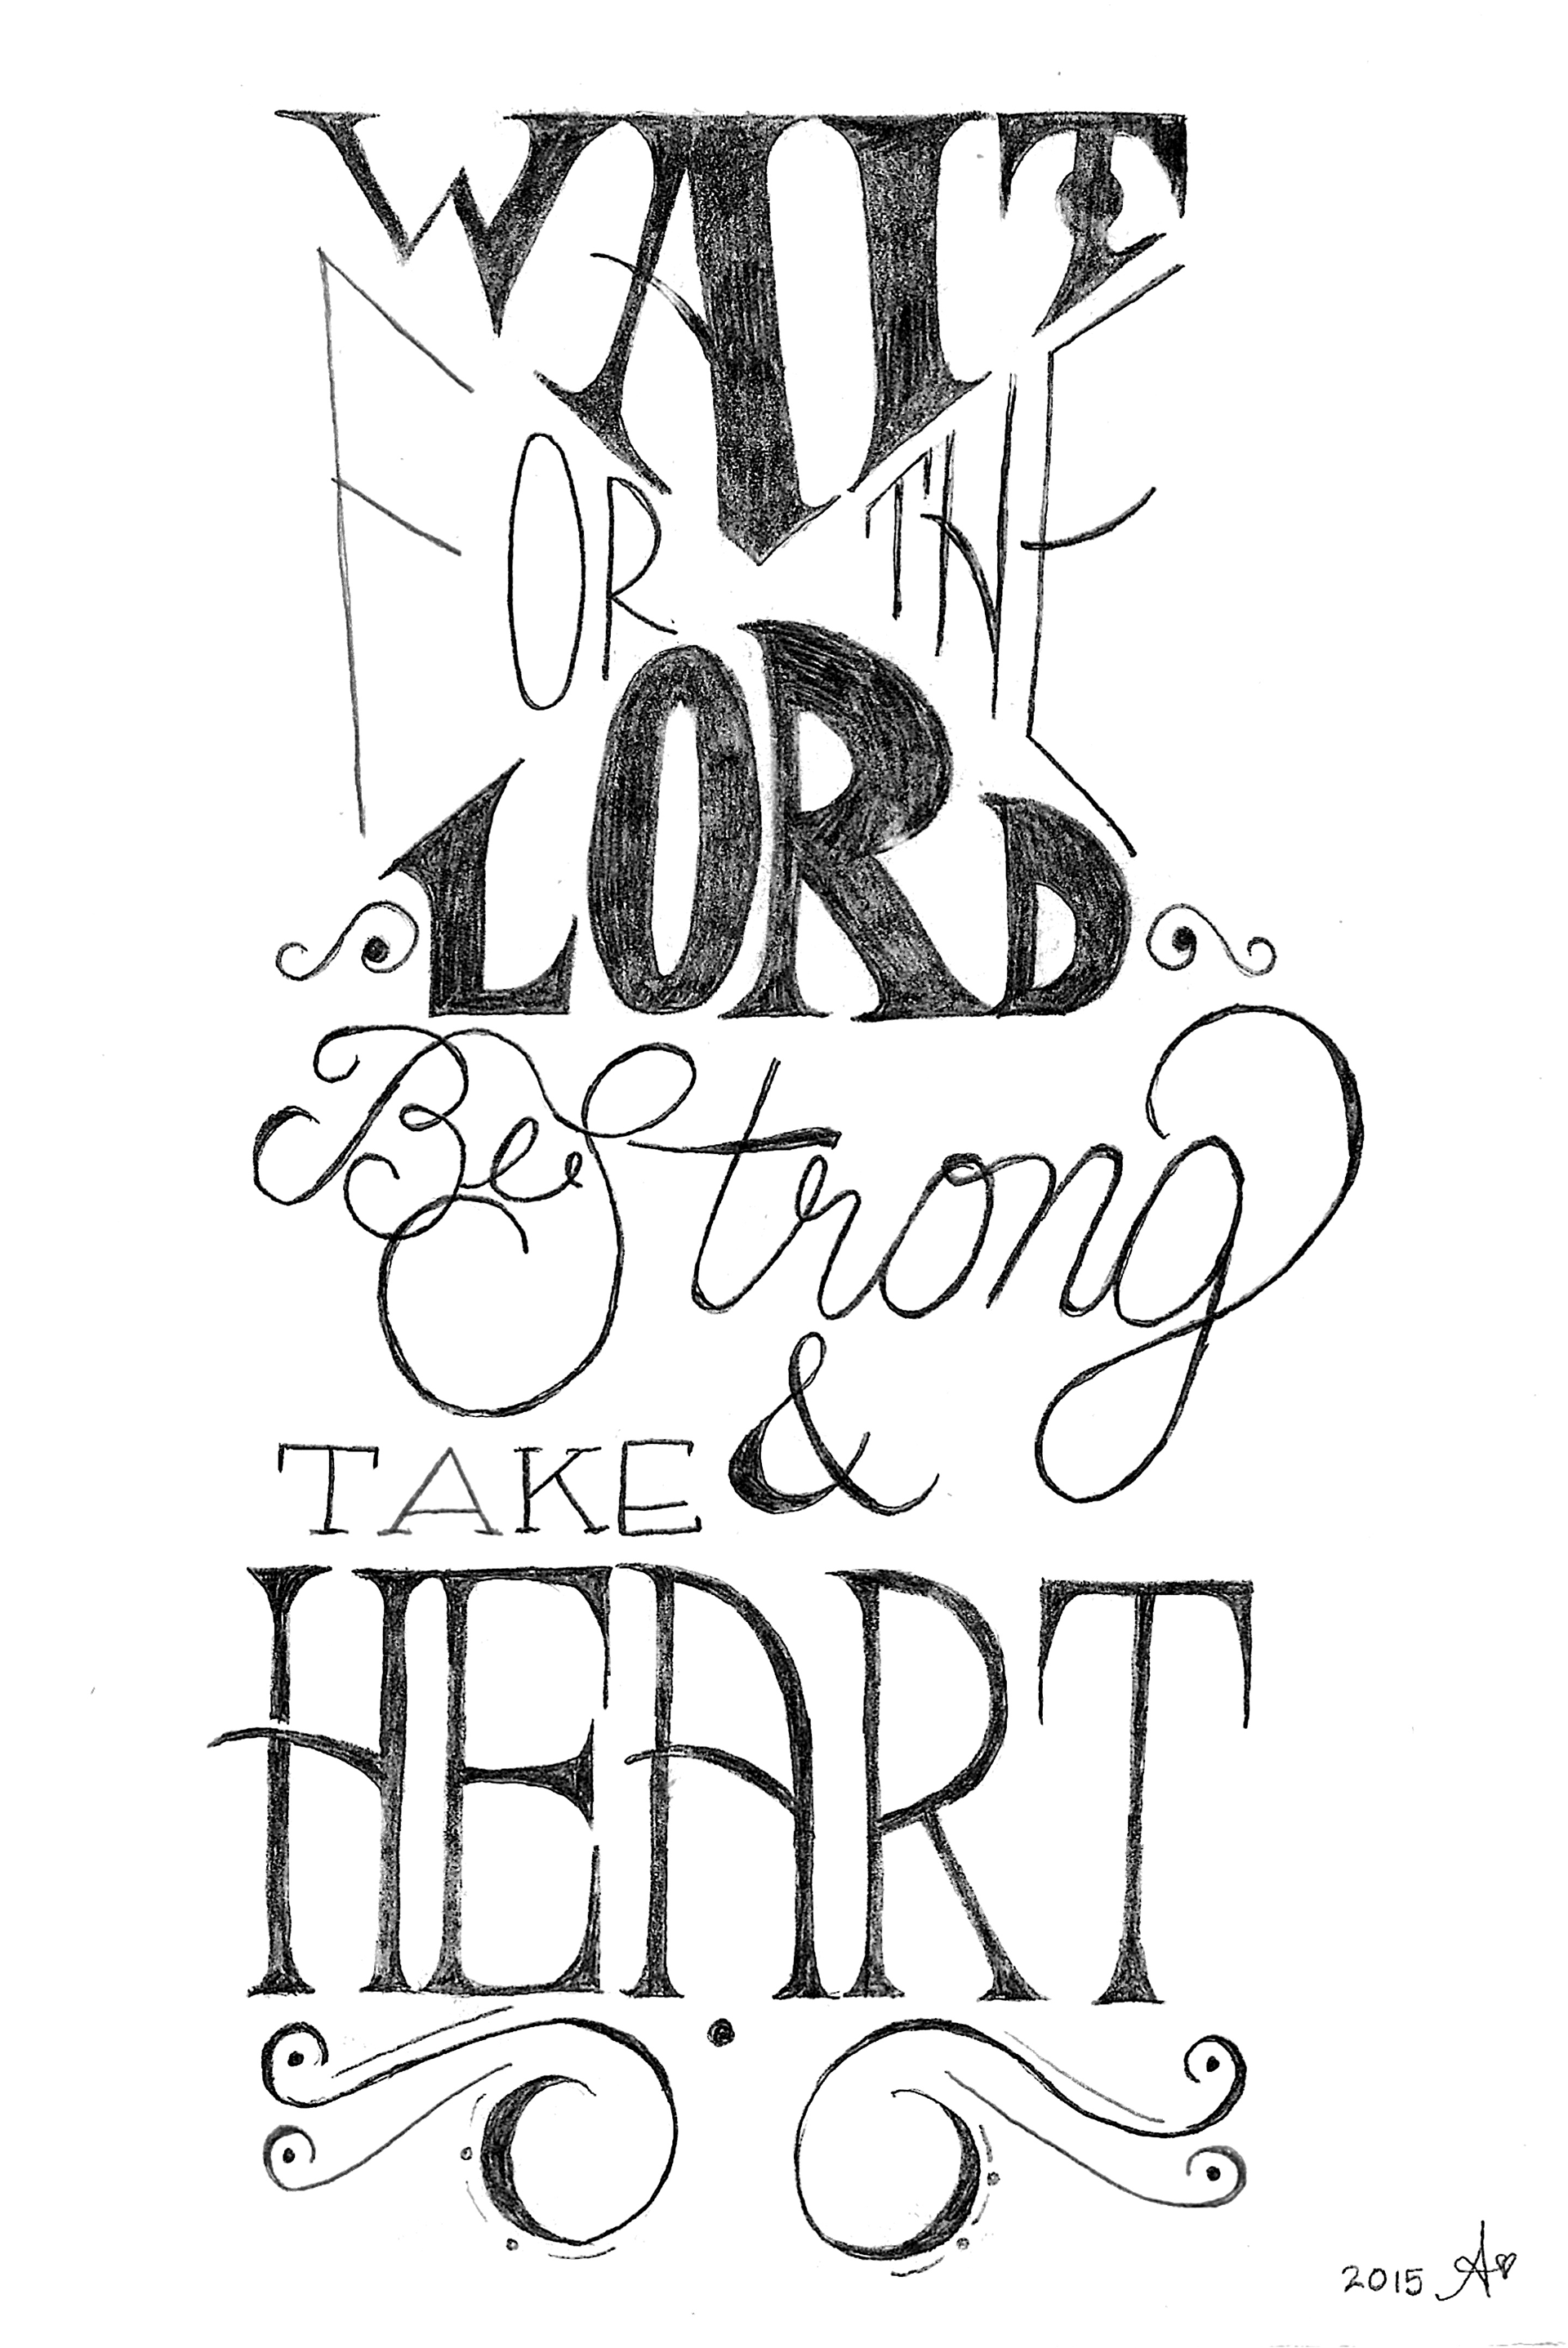 WAIT
FOR THE
LORD
Be Strong
&
TAKE
HEART
2015 A